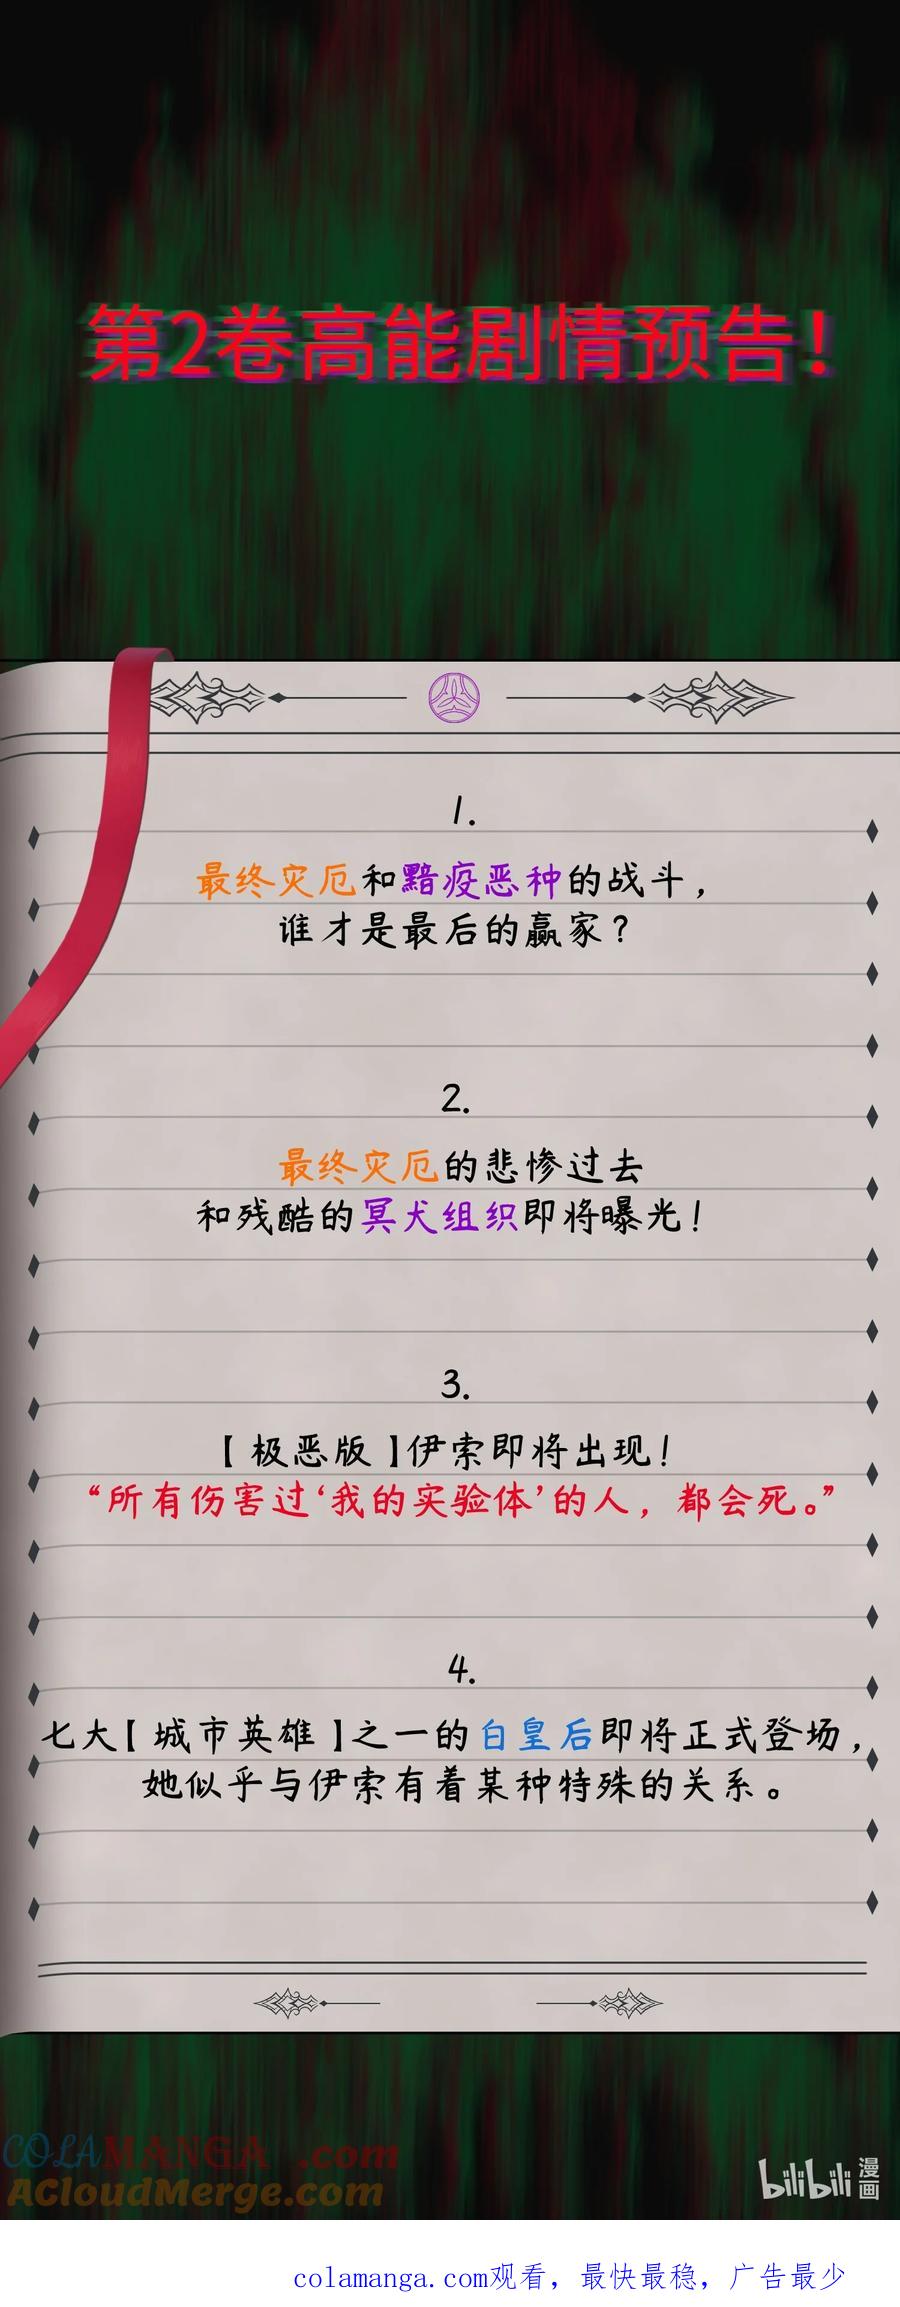 第2卷高能剧情预告！
1.
最终灾厄和黯疫恶种的战斗，
谁才是最后的赢家？
2.
最终灾厄的悲惨过去
和残酷的冥犬组织即将曝光！
3.
【极恶版】伊索即将出现！
“所有伤害过‘我的实验体’的人，都会死。”
4.
七大【城市英雄】之一的白皇后即将正式登场，
她似乎与伊索有着某种特殊的关系。
COLAMANGA.com
ACloudMerge.com
bilibili漫画
colamanga.com观看，最快最稳，广告最少